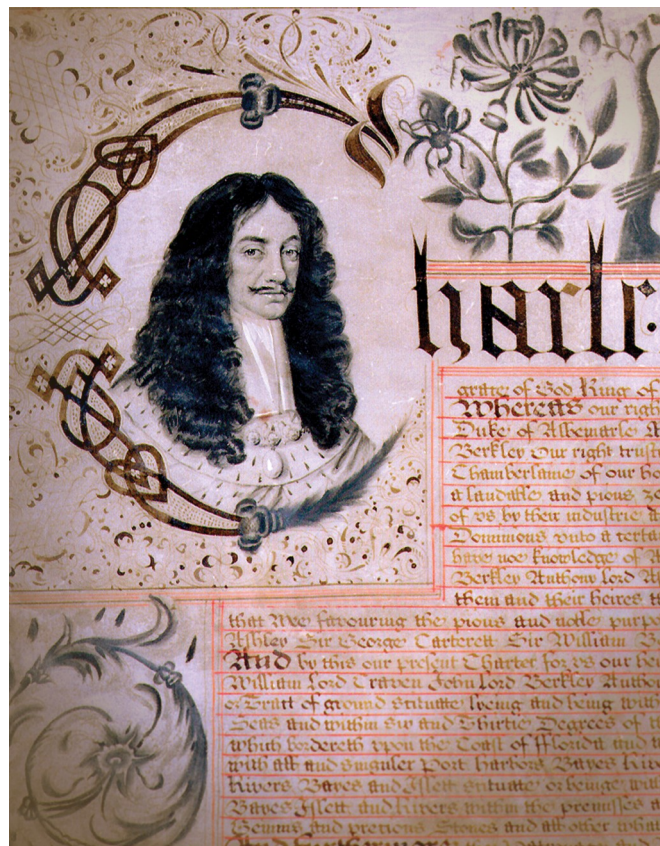 Charles
grace of God King of
Whereas our right
Duke of Albemarle A
Berkley Our right trust
Chamberlaine of our ho
a laudable and pious ze
of vs by their industrie a
Dominions vnto a certa
have noe knowledge of A
Berkley Anthony Lord A
them and their heires t
that Wee favouring the pious and noble purpo
Ashley Sir George Carterett Sir William B
And by this our present Charter for vs our hei
William Lord Craven John Lord Berkley Anthon
or Tract of ground situate lyeing and being with
Seas and within six and Thirtie Degrees of t
which bordereth vpon the Coast of fflorida and
with all and singuler Port Harbors Bayes Rive
Rivers Bayes and Islett situate or beinge with
Bayes Islett and Rivers within the premisses a
Gemms and pretious Stones and all other what